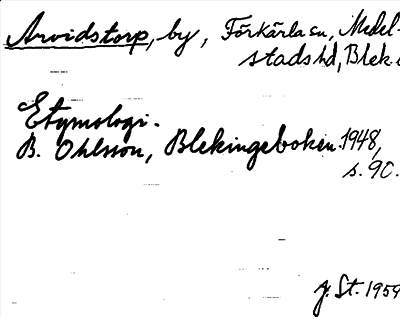 Arvidstorp, by, Förkärla sn, Medel-
stads hd, Blek
Etymologi.
B. Ohlsson, Blekingeboken 1948,
s. 90.
J. St. 1959